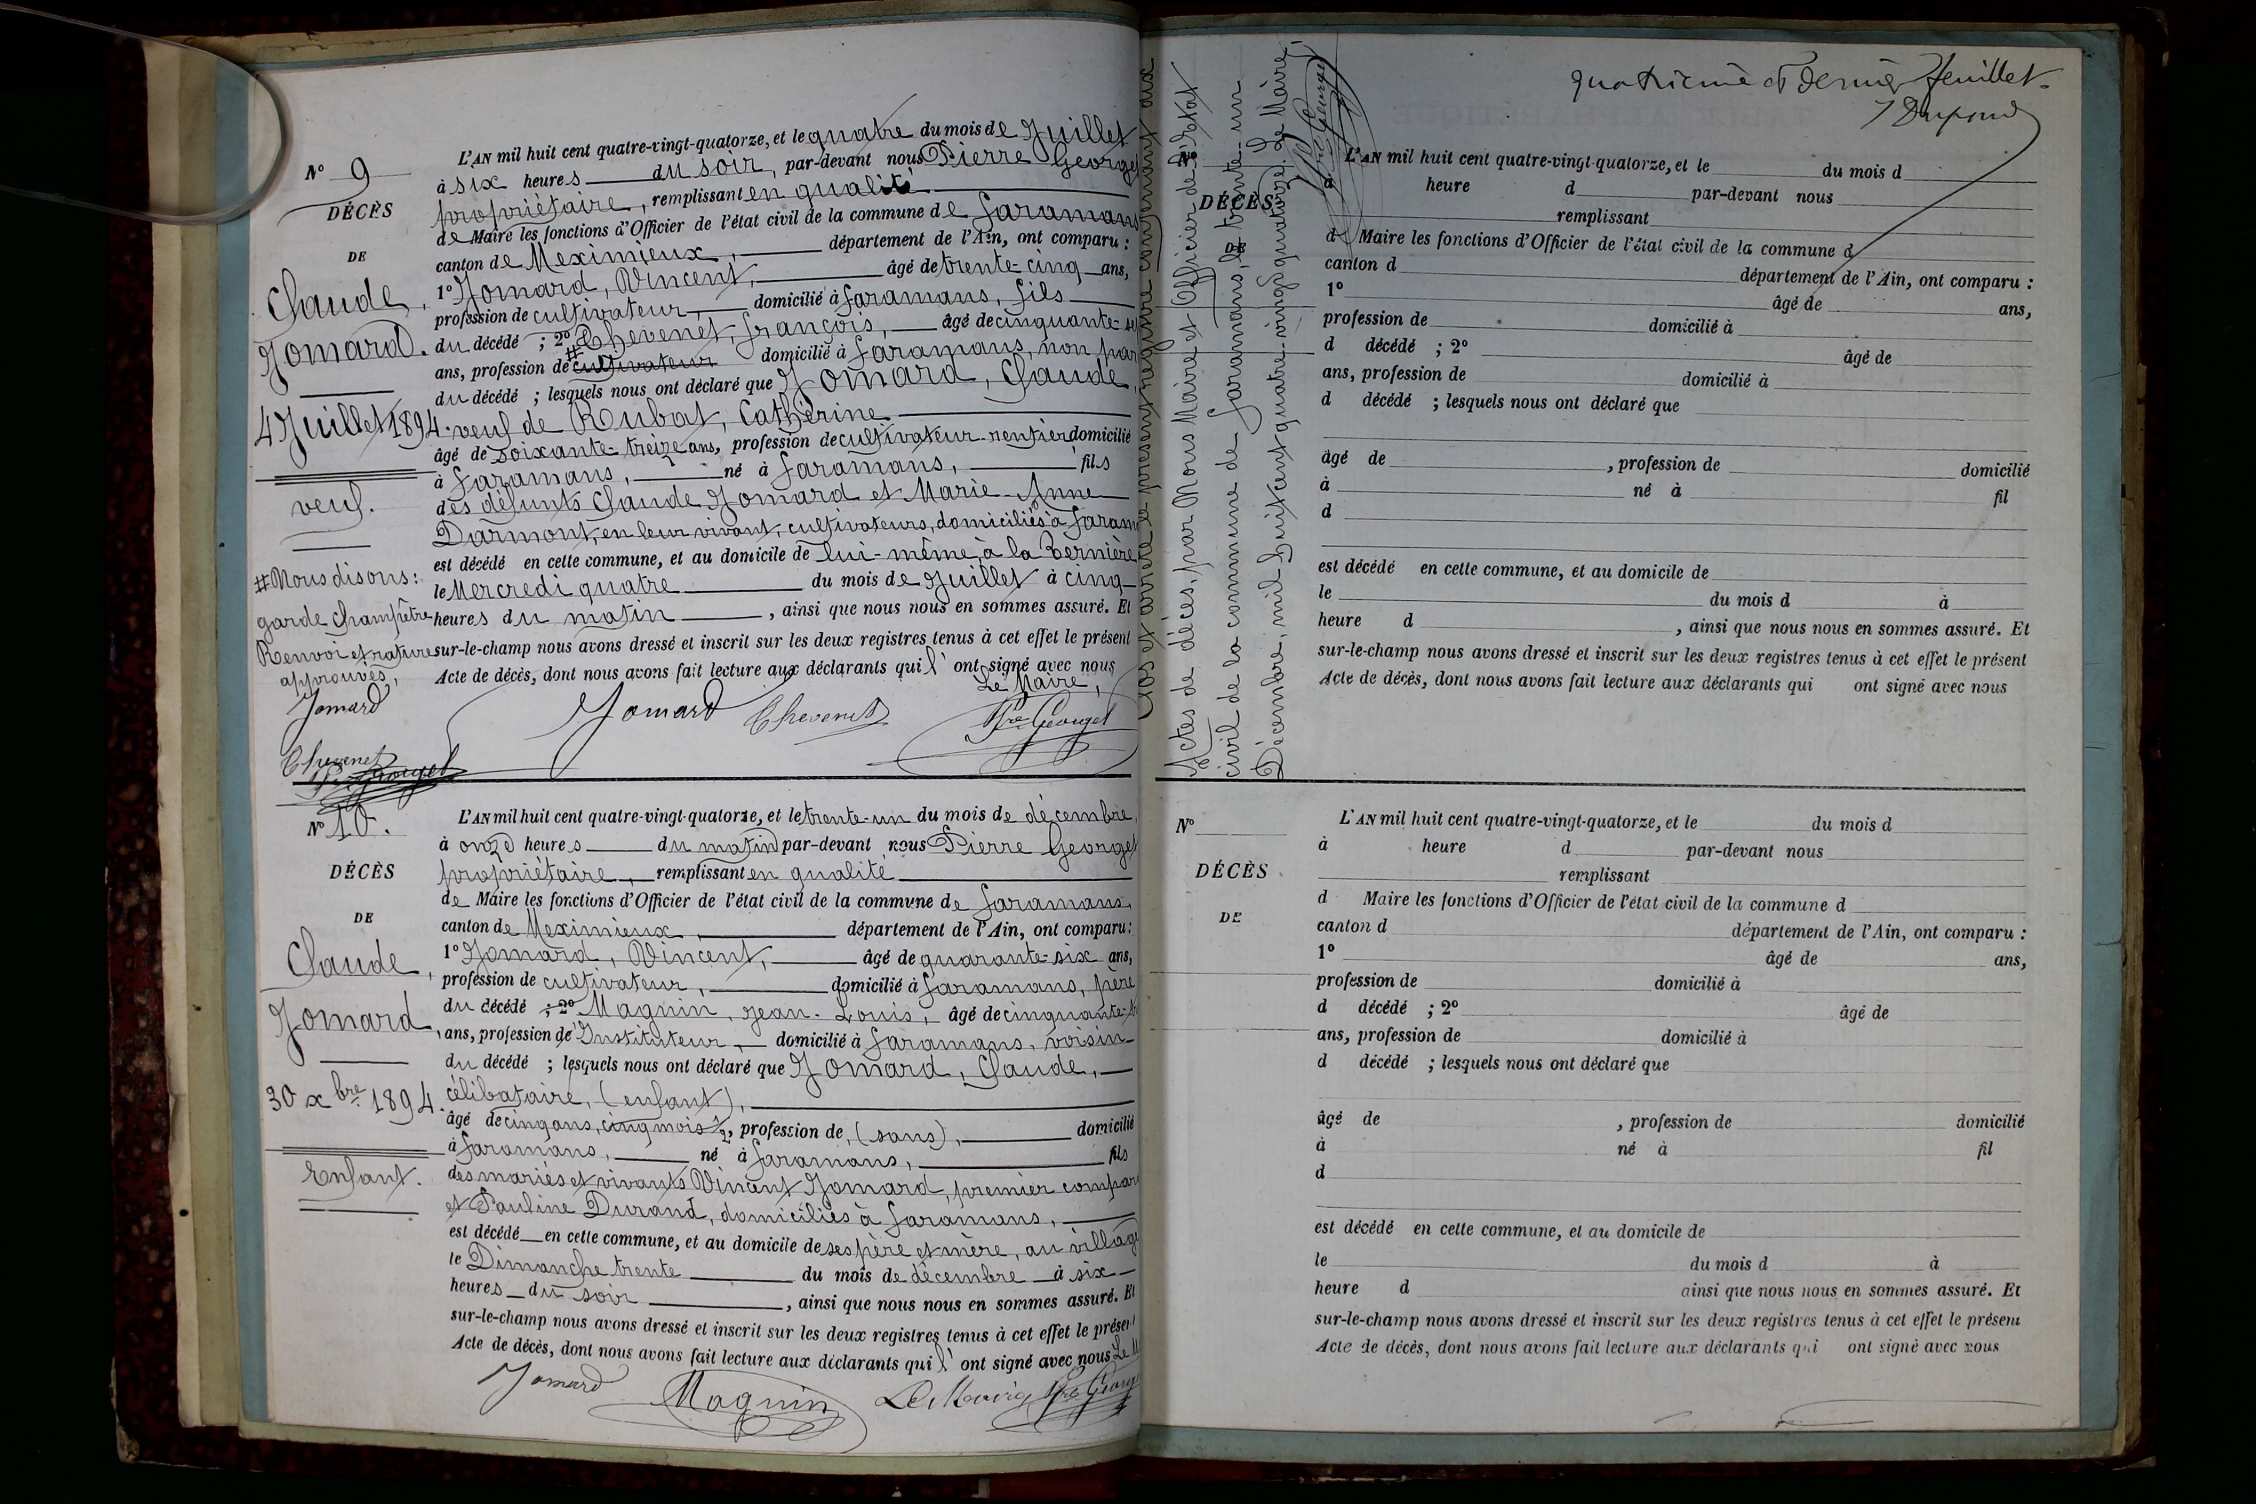 No 9
DÉCÈS
DE
Claude,
Jomard.
4 Juillet 1894.
veuf.
# Nous disons :
garde champêtre
Renvoi et rature
approuvés,
Jomard
Chevenet
Pre Georget
L'AN mil huit cent quatre-vingt-quatorze, et le quatre du mois de Juillet
à six heures du soir, par-devant nous Pierre Georget
propriétaire, remplissant en qualité
de Maire les fonctions d'Officier de l'état civil de la commune de Faramans
canton de Meximieux, département de l'Ain, ont comparu :
1o Jomard, Vincent, âgé de trente-cinq ans,
profession de cultivateur, domicilié à Faramans, fils
du décédé ; 2o Chevenet, françois, âgé de cinquante-
ans, profession de # cultivateur domicilié à Faramans, non par
du décédé ; lesquels nous ont déclaré que Jomard, Claude,
veuf de Rubat, Cathérine
âgé de soixante-treize ans, profession de cultivateur-rentier domicilié
à Faramans, né à Faramans, fils
des défunts Claude Jomard et Marie-Anne
Darmont, en leur vivant, cultivateurs, domiciliés à Faram
est décédé en cette commune, et au domicile de lui-même, à la Bernière
le Mercredi quatre du mois de Juillet à cinq
heures du matin, ainsi que nous nous en sommes assuré. Et
sur-le-champ nous avons dressé et inscrit sur les deux registres tenus à cet effet le présent
Acte de décès, dont nous avons fait lecture aux déclarants qui l'ont signé avec nous
Le Maire,
Jomard Chevenet Pre Georget
No 10.
DÉCÈS
DE
Claude,
Jomard,
30 xbre 1894.
Enfant.
L'AN mil huit cent quatre-vingt-quatorze, et le trente-un du mois de décembre,
à onze heures du matin par-devant nous Pierre Georget
propriétaire, remplissant en qualité
de Maire les fonctions d'Officier de l'état civil de la commune de Faramans,
canton de Meximieux, département de l'Ain, ont comparu :
1o Jomard, Vincent, âgé de quarante-six ans,
profession de cultivateur, domicilié à Faramans, père
du décédé ; 2o Magnin, Jean-Louis, âgé de cinquante-
ans, profession d'Instituteur, domicilié à Faramans, voisin
du décédé ; lesquels nous ont déclaré que Jomard, Claude,
célibataire, (enfant),
âgé de cinq ans, cinq mois 1/2, profession de, (sans), domicilié
à Faramans, né à Faramans, fils
des mariés et vivants Vincent Jomard, premier compar
et Pauline Durand, domiciliés à Faramans,
est décédé en cette commune, et au domicile de ses père et mère, au village
le Dimanche trente du mois de décembre à six
heures du soir, ainsi que nous nous en sommes assuré. Et
sur-le-champ nous avons dressé et inscrit sur les deux registres tenus à cet effet le présent
Acte de décès, dont nous avons fait lecture aux déclarants qui l'ont signé avec nous Le M
Jomard Magnin Le Maire, Pre Georget
Clos et arrêté le présent registre contenant dix
Actes de décès, par Nous Maire et Officier de l'Etat
civil de la commune de Faramans, le trente-un
Décembre, mil huit cent quatre-vingt quatorze. Le Maire,
Pre Georget
quatrième et dernier feuillet.
Dupond
No
DÉCÈS
DE
L'AN mil huit cent quatre-vingt-quatorze, et le du mois d
à heure d par-devant nous
remplissant
d Maire les fonctions d'Officier de l'état civil de la commune d
canton d département de l'Ain, ont comparu :
1o âgé de ans,
profession de domicilié à
d décédé ; 2o âgé de
ans, profession de domicilié à
d décédé ; lesquels nous ont déclaré que
âgé de , profession de domicilié
à né à fil
d
est décédé en cette commune, et au domicile de
le du mois d à
heure d , ainsi que nous nous en sommes assuré. Et
sur-le-champ nous avons dressé et inscrit sur les deux registres tenus à cet effet le présent
Acte de décès, dont nous avons fait lecture aux déclarants qui ont signé avec nous
No
DÉCÈS
DE
L'AN mil huit cent quatre-vingt-quatorze, et le du mois d
à heure d par-devant nous
remplissant
d Maire les fonctions d'Officier de l'état civil de la commune d
canton d département de l'Ain, ont comparu :
1o âgé de ans,
profession de domicilié à
d décédé ; 2o âgé de
ans, profession de domicilié à
d décédé ; lesquels nous ont déclaré que
âgé de , profession de domicilié
à né à fil
d
est décédé en cette commune, et au domicile de
le du mois d à
heure d ainsi que nous nous en sommes assuré. Et
sur-le-champ nous avons dressé et inscrit sur les deux registres tenus à cet effet le présent
Acte de décès, dont nous avons fait lecture aux déclarants qui ont signé avec nous